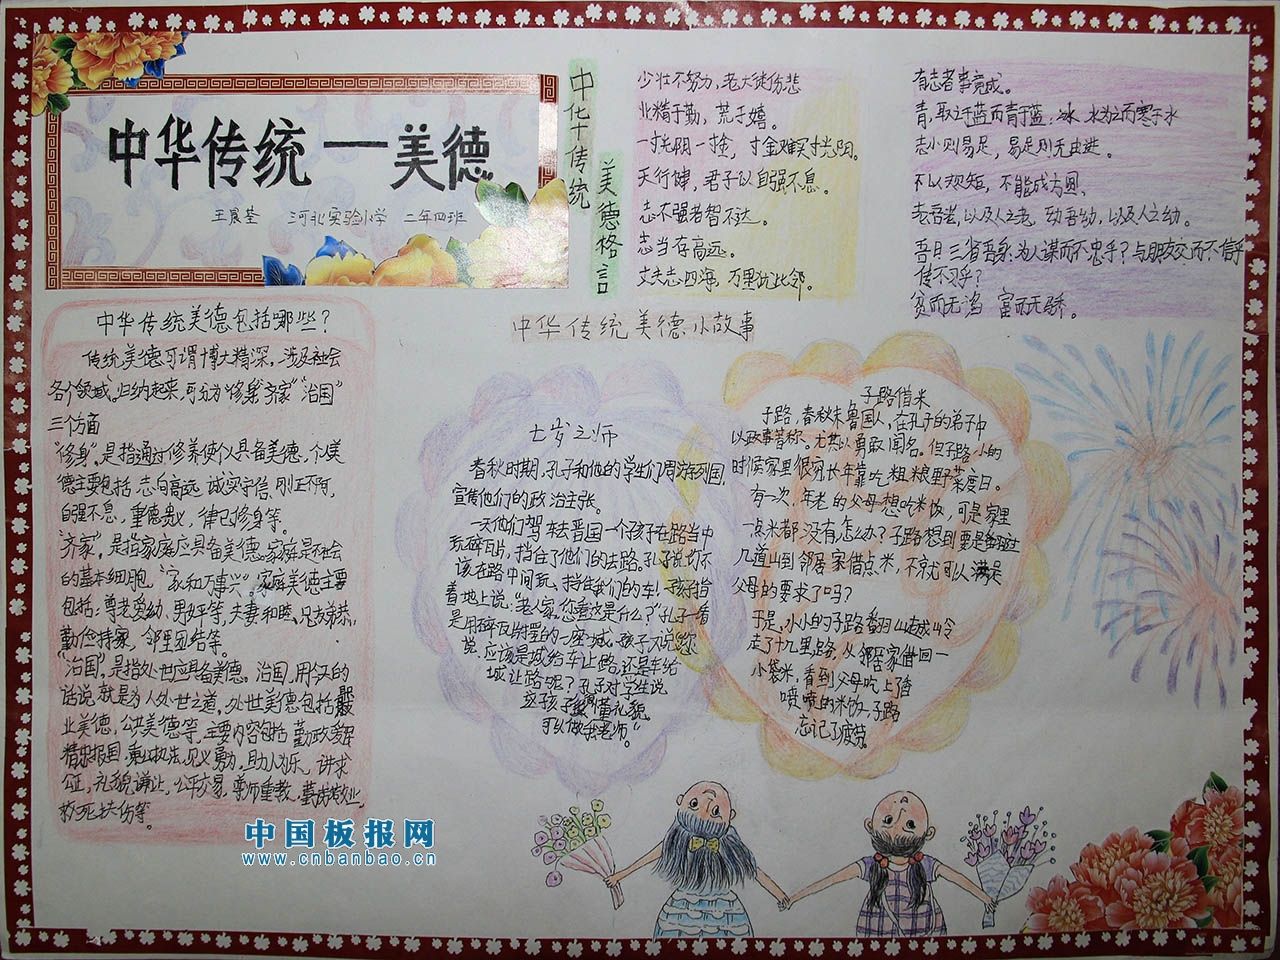 中华传统一美德
王晨荃 河北实验小学 二年四班
中华传统
美德格言
少壮不努力,老大徒伤悲
业精于勤,荒于嬉。
一寸光阴一寸金,寸金难买寸光阴。
天行健,君子以自强不息。
志不强者智不达。
志当存高远。
丈夫志四海,万里犹比邻。
有志者事竟成。
青,取之于蓝而青于蓝;冰,水为之而寒于水
志小则易足,易足则无由进。
不以规矩,不能成方圆。
老吾老,以及人之老,幼吾幼,以及人之幼。
吾日三省吾身:为人谋而不忠乎?与朋友交而不信乎
传不习乎?
贫而无谄 富而无骄。
中华传统美德包括哪些?
传统美德可谓博大精深,涉及社会
各个领域。归纳起来,可分为“修身”“齐家”“治国”
三个方面
“修身”,是指通过修养使个人具备美德,个人美
德主要包括 志向高远 诚实守信,刚正不阿,
自强不息,重德贵义,律己修身等。
“齐家”,是指家庭应具备美德,家庭是社会
的基本细胞,“家和万事兴”。家庭美德主要
包括:尊老爱幼、男女平等,夫妻和睦,兄友弟恭,
勤俭持家,邻里团结等。
“治国”,是指处世应具备美德。治国,用今天的
话说就是为人处世之道,处世美德包括职
业美德,公共美德等,主要内容包括 勤政爱民
精忠报国,秉公执法,见义勇为,助人为乐,讲求
公正,礼貌谦让,公平交易,尊师重教,
救死扶伤等。
中华传统美德小故事
七岁之师
春秋时期,孔子和他的学生们周游列国,
宣传他们的政治主张。
一天他们驾车去晋国一个孩子在路当中
玩碎瓦片,挡住了他们的去路。孔子说:“你不
该在路中间玩,挡住我们的车!”孩子指
着地上说:“老人家,您看这是什么?”孔子一看
是用碎瓦片摆的一座城。孩子又说:“您
说,应该是城给车让路,还是车给
城让路呢?”孔子对学生说
这孩子懂礼貌,
可以做我老师。”
子路借米
子路,春秋末鲁国人,在孔子的弟子中
以政事著称。尤其以勇敢闻名。但子路小的
时候家里很穷长年靠吃粗粮野菜度日。
有一次,年老的父母想吃米饭,可是家里
一点米都没有怎么办?子路想到要是翻过
几道山到邻居家借点米,不就可以满足
父母的要求了吗?
于是,小小的子路翻山越岭
走了十几里路,从邻居家借回一
小袋米,看到父母吃上香
喷喷的米饭,子路
忘记了疲劳。
中国板报网
www.cnbanbao.cn